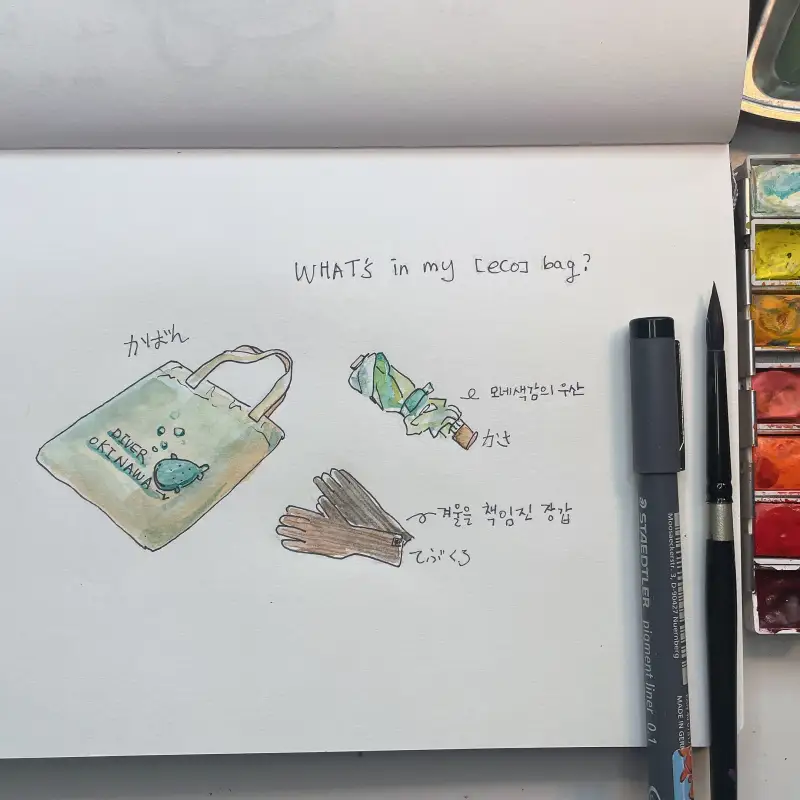 WHAT's in my [eco] bag?
かばん
DIVER
OKINAWA
모네색감의 우산
かさ
겨울을 책임진 장갑
てぶくろ
STAEDTLER pigment liner 0.1
Moosaeckerstr. 3, D-90427 Nuernberg
MADE IN GER